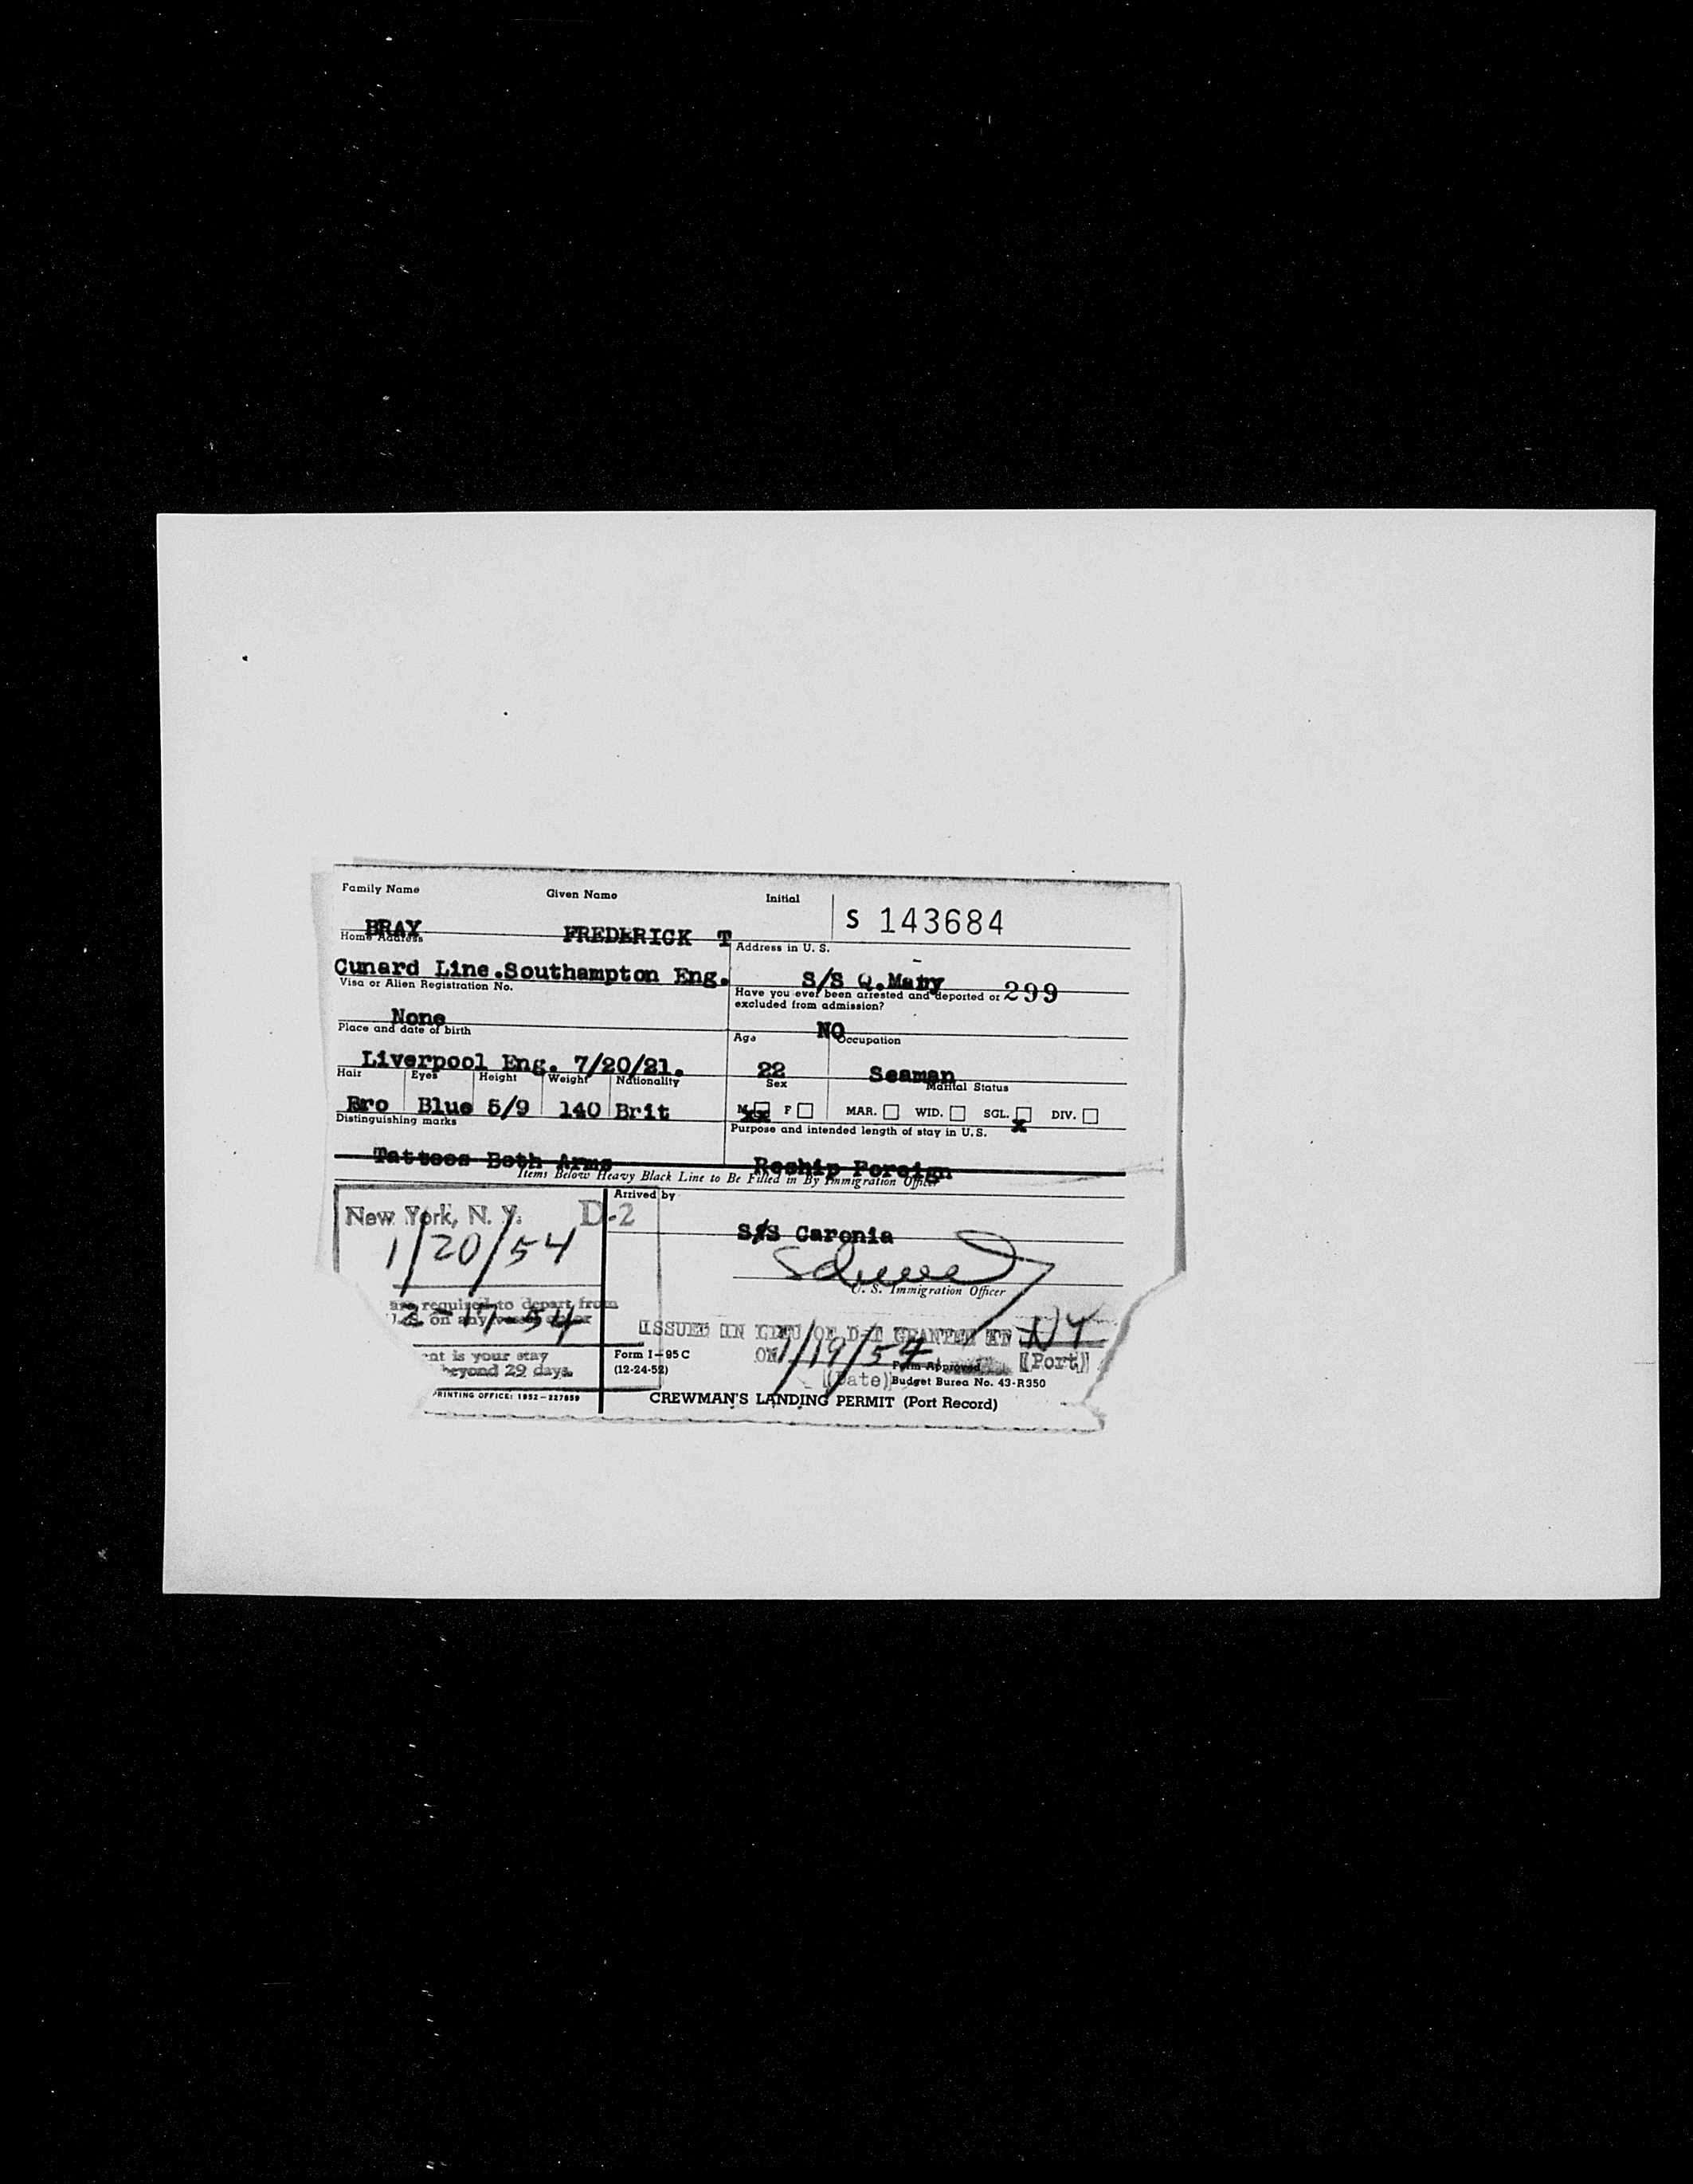 Family Name Given Name Initial S 143684
BRAY FREDERICK T
Home Address Address in U. S.
Cunard Line.Southampton Eng. S/S Q.Mary 299
Visa or Alien Registration No. Have you ever been arrested and deported or excluded from admission?
None NO
Place and date of birth Age Occupation
Liverpool Eng. 7/20/21. 22 Seaman
Hair Eyes Height Weight Nationality Sex Marital Status
Bro Blue 5/9 140 Brit M xx F MAR. WID. SGL. x DIV.
Distinguishing marks Purpose and intended length of stay in U.S.
Tattoos Both Arms Reship Foreign
Items Below Heavy Black Line to Be Filled in By Immigration Officer
Arrived by
New York, N. Y. D-2
1/20/54 S/S Caronia
U. S. Immigration Officer
are required to depart from
on any
2-17-54
ISSUED IN LIEU OF D-1 GRANTED AT NY
ON 1/19/54 (Port)
nt is your stay
beyond 29 days.
Form I-95C
(12-24-52)
Form Approved
(Date) Budget Bureau No. 43-R350
PRINTING OFFICE: 1952-227859
CREWMAN'S LANDING PERMIT (Port Record)